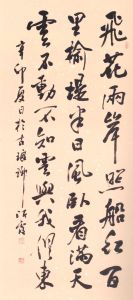 飛花兩岸照船紅百
里榆堤半日風臥看滿天
雲不動不知雲與我俱東
辛卯夏日於古